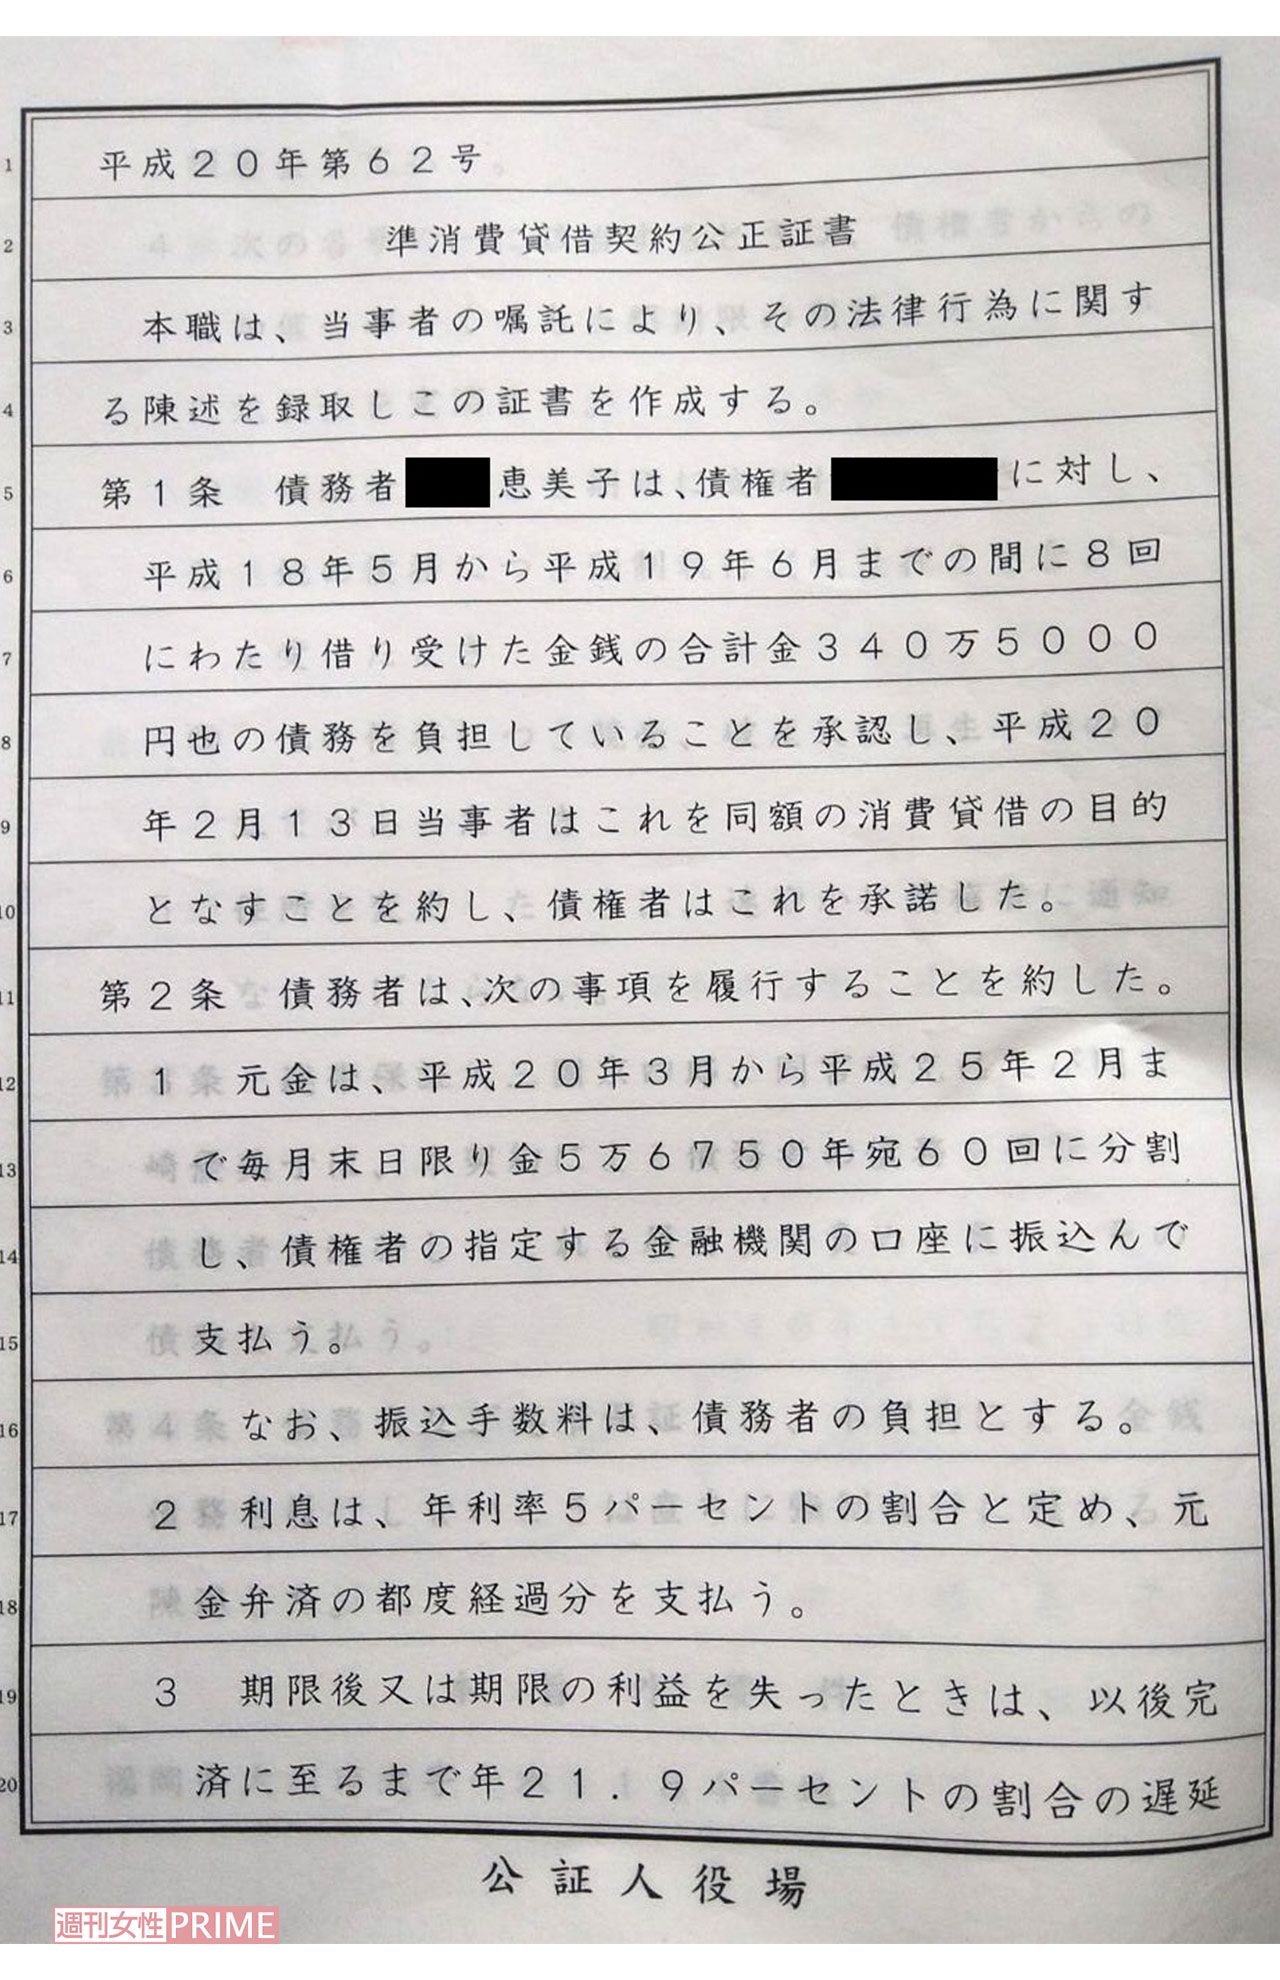 1 平成20年第62号
2 準消費貸借契約公正証書
3 本職は、当事者の嘱託により、その法律行為に関す
4 る陳述を録取しこの証書を作成する。
5 第1条 債務者 恵美子は、債権者 に対し、
6 平成18年5月から平成19年6月までの間に8回
7 にわたり借り受けた金銭の合計金340万5000
8 円也の債務を負担していることを承認し、平成20
9 年2月13日当事者はこれを同額の消費貸借の目的
10 となすことを約し、債権者はこれを承諾した。
11 第2条 債務者は、次の事項を履行することを約した。
12 1 元金は、平成20年3月から平成25年2月ま
13 で毎月末日限り金5万6750年宛60回に分割
14 し、債権者の指定する金融機関の口座に振込んで
15 支払う。
16 なお、振込手数料は、債務者の負担とする。
17 2 利息は、年利率5パーセントの割合と定め、元
18 金弁済の都度経過分を支払う。
19 3 期限後又は期限の利益を失ったときは、以後完
20 済に至るまで年21.9パーセントの割合の遅延
公証人役場
週刊女性PRIME